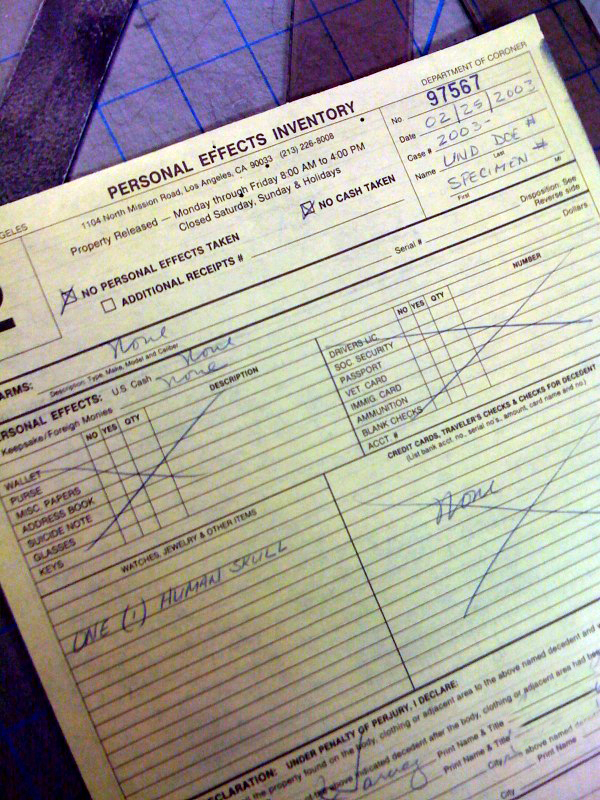 DEPARTMENT OF CORONER
PERSONAL EFFECTS INVENTORY
No. 97567
1104 North Mission Road, Los Angeles, CA 90033 (213) 226-8008
Date 02/25/2003
Property Released — Monday through Friday 8:00 AM to 4:00 PM
Case # 2003-
Closed Saturday, Sunday & Holidays
Name UND DOE #
Last
SPECIMEN #
First MI
NO CASH TAKEN
NO PERSONAL EFFECTS TAKEN
ADDITIONAL RECEIPTS #
Serial #
Disposition, See
Reverse side
Dollars
ARMS: None
Description, Type, Make, Model and Caliber
RSONAL EFFECTS: U.S. Cash None
Keepsake/Foreign Monies None
NO YES QTY DESCRIPTION
WALLET
PURSE
MISC PAPERS
ADDRESS BOOK
SUICIDE NOTE
GLASSES
KEYS
NO YES QTY NUMBER
DRIVERS LIC.
SOC. SECURITY
PASSPORT
VET CARD
IMMIG. CARD
AMMUNITION
BLANK CHECKS
ACCT. #
WATCHES, JEWELRY & OTHER ITEMS
ONE (1) HUMAN SKULL
CREDIT CARDS, TRAVELER'S CHECKS & CHECKS FOR DECEDENT
(List bank acct. no., serial no's., amount, card name and no.)
None
DECLARATION: UNDER PENALTY OF PERJURY, I DECLARE:
the property found on the body, clothing or adjacent area to the above named decedent and
the above named decedent after the body, clothing or adjacent area had
Print Name & Title
Print Name & Title
City
above named
Print Name
City